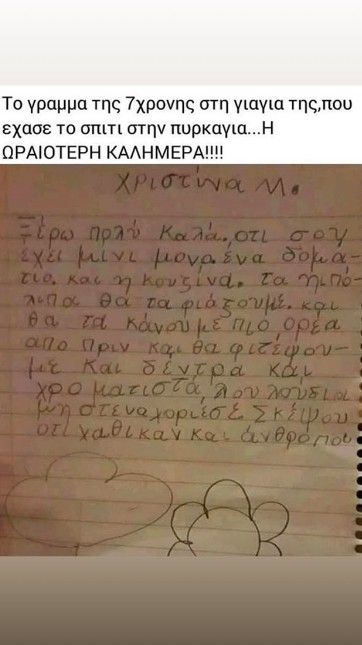 Το γραμμα της 7χρονης στη γιαγια της,που
εχασε το σπιτι στην πυρκαγια...Η
ΩΡΑΙΟΤΕΡΗ ΚΑΛΗΜΕΡΑ!!!!
ΧΡΙΣΤΙΝΑ Μ.
Ξέρω πολύ καλά, οτι σου
έχει μίνι μονο ένα δομά-
τιο. και η κουζίνα. τα ηπό-
λιπα θα τα φιάξουμε. και
θα τα κάνουμε πιό ορέα
απο πριν και θα φιτέψου-
με και δέντρα και
χροματιστά, λουλούδια
μη στεναχοριέσε Σκέψου
οτι χαθικαν και άνθρόποι